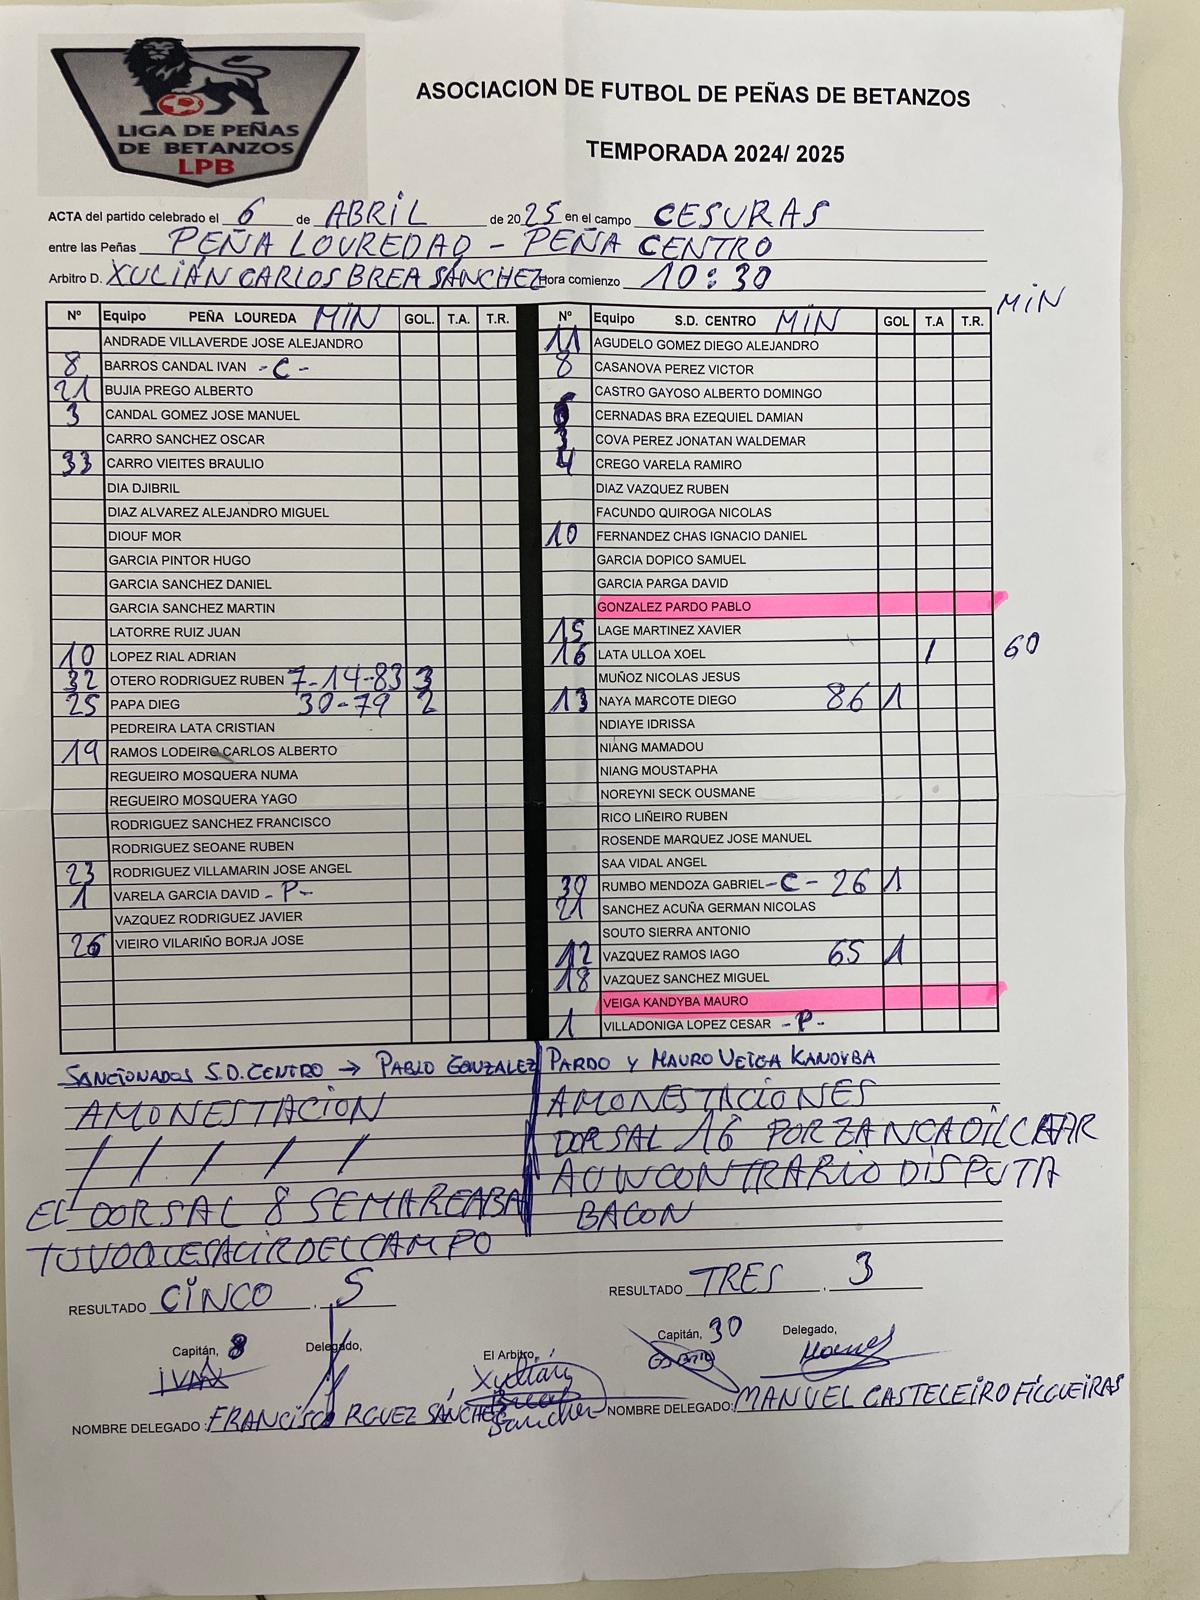 LIGA DE PEÑAS
DE BETANZOS
LPB
ASOCIACION DE FUTBOL DE PEÑAS DE BETANZOS
TEMPORADA 2024/ 2025
ACTA del partido celebrado el 6 de ABRIL de 2025 en el campo CESURAS
entre las Peñas PEÑA LOUREDAD - PEÑA CENTRO
Arbitro D. XULIÁN CARLOS BREA SÁNCHEZ Hora comienzo 10:30
MIN
Nº Equipo PEÑA LOUREDA MIN GOL. T.A. T.R.
ANDRADE VILLAVERDE JOSE ALEJANDRO
8 BARROS CANDAL IVAN -C-
21 BUJIA PREGO ALBERTO
3 CANDAL GOMEZ JOSE MANUEL
CARRO SANCHEZ OSCAR
33 CARRO VIEITES BRAULIO
DIA DJIBRIL
DIAZ ALVAREZ ALEJANDRO MIGUEL
DIOUF MOR
GARCIA PINTOR HUGO
GARCIA SANCHEZ DANIEL
GARCIA SANCHEZ MARTIN
LATORRE RUIZ JUAN
10 LOPEZ RIAL ADRIAN
32 OTERO RODRIGUEZ RUBEN 7-14-83 3
25 PAPA DIEG 30-79 2
PEDREIRA LATA CRISTIAN
19 RAMOS LODEIRO CARLOS ALBERTO
REGUEIRO MOSQUERA NUMA
REGUEIRO MOSQUERA YAGO
RODRIGUEZ SANCHEZ FRANCISCO
RODRIGUEZ SEOANE RUBEN
23 RODRIGUEZ VILLAMARIN JOSE ANGEL
1 VARELA GARCIA DAVID -P-
VAZQUEZ RODRIGUEZ JAVIER
26 VIEIRO VILARIÑO BORJA JOSE
Nº Equipo S.D. CENTRO MIN GOL T.A T.R.
11 AGUDELO GOMEZ DIEGO ALEJANDRO
8 CASANOVA PEREZ VICTOR
CASTRO GAYOSO ALBERTO DOMINGO
CERNADAS BRA EZEQUIEL DAMIAN
3 COVA PEREZ JONATAN WALDEMAR
4 CREGO VARELA RAMIRO
DIAZ VAZQUEZ RUBEN
FACUNDO QUIROGA NICOLAS
10 FERNANDEZ CHAS IGNACIO DANIEL
GARCIA DOPICO SAMUEL
GARCIA PARGA DAVID
GONZALEZ PARDO PABLO
15 LAGE MARTINEZ XAVIER
16 LATA ULLOA XOEL 1 60
MUÑOZ NICOLAS JESUS
13 NAYA MARCOTE DIEGO 86 1
NDIAYE IDRISSA
NIANG MAMADOU
NIANG MOUSTAPHA
NOREYNI SECK OUSMANE
RICO LIÑEIRO RUBEN
ROSENDE MARQUEZ JOSE MANUEL
SAA VIDAL ANGEL
30 RUMBO MENDOZA GABRIEL -C- 26 1
21 SANCHEZ ACUÑA GERMAN NICOLAS
SOUTO SIERRA ANTONIO
12 VAZQUEZ RAMOS IAGO 65 1
18 VAZQUEZ SANCHEZ MIGUEL
VEIGA KANDYBA MAURO
1 VILLADONIGA LOPEZ CESAR -P-
SANCIONADOS S.D. CENTRO → PABLO GONZALEZ PARDO Y MAURO VEIGA KANDYBA
AMONESTACION
/ / / / /
EL DORSAL 8 SEMAREABA
TUVOQUESALIRDELCAMPO
AMONESTACIONES
DORSAL 16 POR ZANCADILCEAR
AUNCONTRARIO DISPUTA
BACON
RESULTADO CINCO . 5
RESULTADO TRES . 3
Capitán, 8 Delegado, El Arbitro, Capitán, 30 Delegado,
IVAN Xulián Brea Sánchez
NOMBRE DELEGADO: FRANCISCO RGUEZ SÁNCHEZ NOMBRE DELEGADO: MANUEL CASTELEIRO FIGUEIRAS